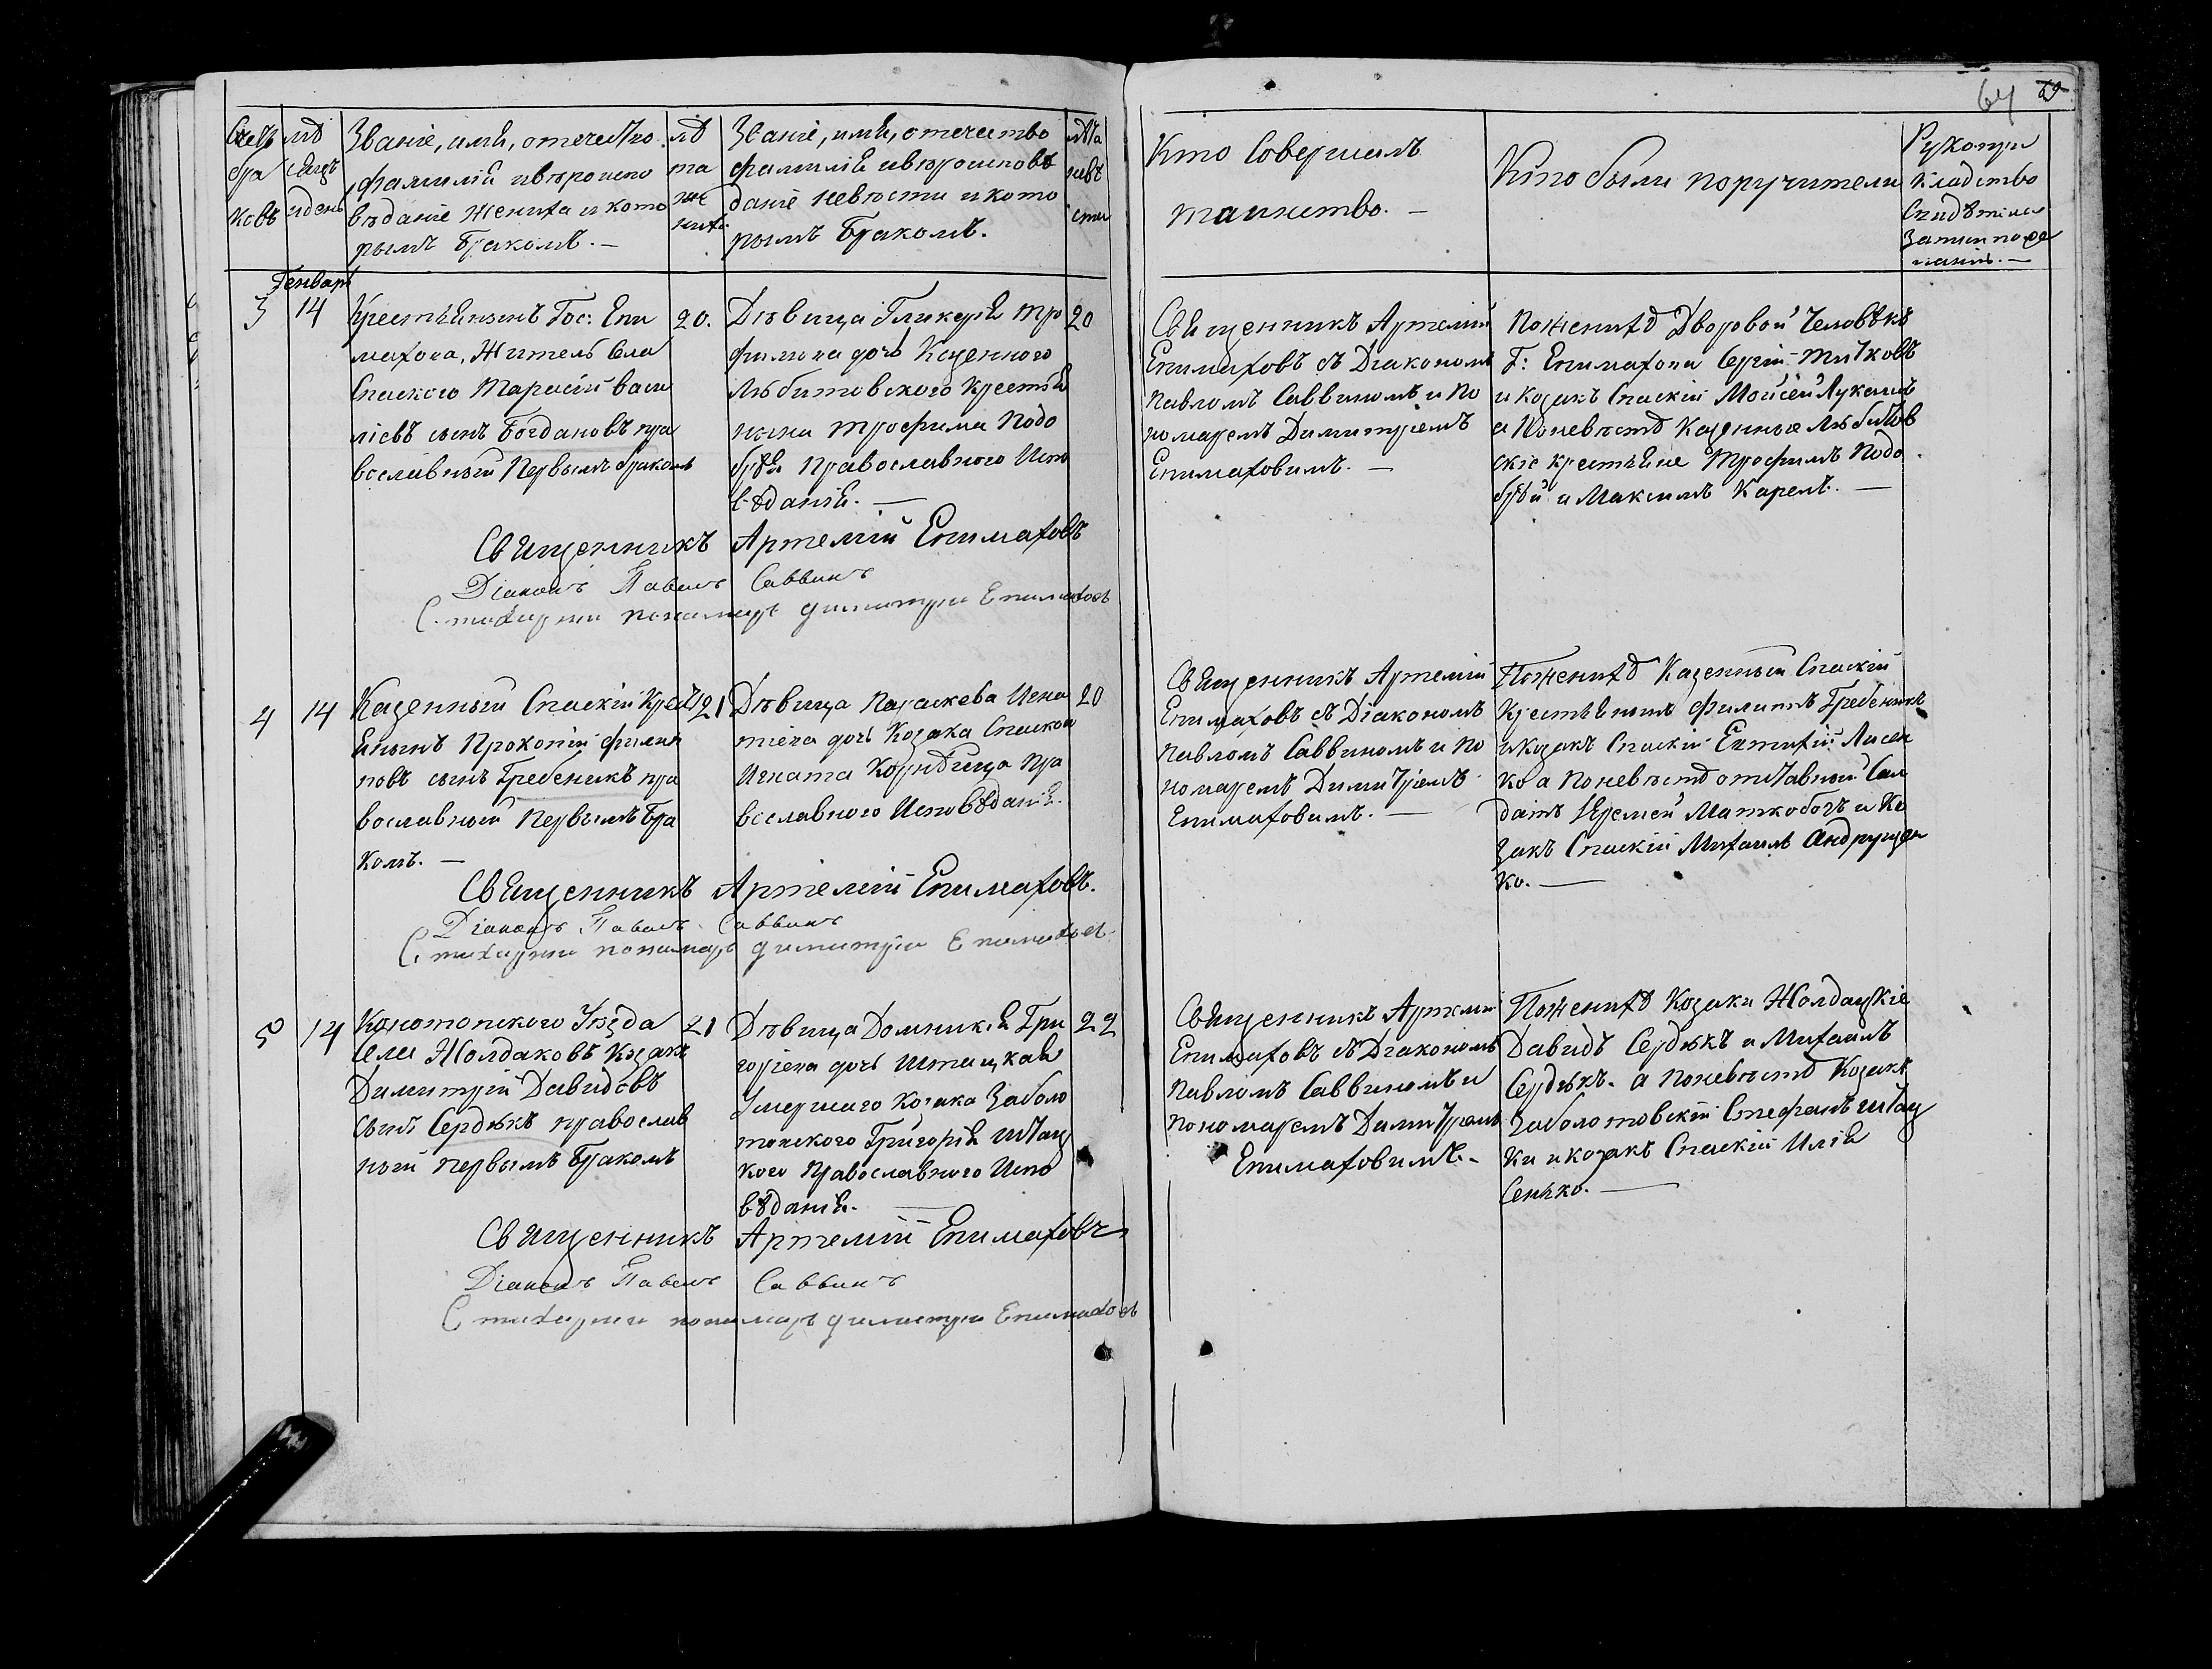 64
Счетъ браковъ
мѣсяцъ и день
Званіе, имя, отечество
, фамилія и вѣроиспо
вѣданіе жениха и кото
рымъ бракомъ. —
лѣ
та
же
ниха
Званіе, имя, отечество
фамилія и вѣроисповѣ
даніе невѣсти и кото
рымъ бракомъ.
лѣта
невѣ
сти
Кто совершалъ
таинство. —
Кто были поручители
Рукопри
кладство
Свидѣтелей
Генварь
3
14
Крестьянинъ Гос: Епи
махова, житель села
Спаского Тарасій Васи
ліевъ сынъ Богдановъ пра
вославный Первымъ бракомъ
20.
Дѣвица Гликерія Тро
фимова дочь Казенного
Любитовского крестья
нина Трофима Подо
Православного Испо
вѣданія. —
20
Священникъ Артемій
Епимаховъ съ Діакономъ
Павломъ Саввиномъ и По
номаремъ Димитріемъ
Епимаховимъ. —
По женихѣ Дворовой Человѣкъ
Г: Епимахова Сергій Титковъ
и Козакъ Спаскій Мойсей
а По невѣстѣ Казенные Любитов
скіе крестьяне Трофимъ Подо
и Максимъ Карелъ. —
Священникъ Артемій Епимаховъ
Діаконъ Павелъ Саввинъ
Стихарний пономарь Димитрій Епимаховъ
4
14
Казенный Спаскій Крест
янинъ Прокопій Филип
повъ сынъ Гребеникъ пра
вославный Первымъ бра
комъ. —
21
Дѣвица Параскева Игна
тіева дочь Козака Спаского
Игната
вославного Исповѣданія.
20
Священникъ Артемій
Епимаховъ съ Діакономъ
Павломъ Саввиномъ и По
номаремъ Димитріемъ
Епимаховимъ. —
По женихѣ Казенный Спаскій
Крестьянинъ Филиппъ Гребеникъ
и козакъ Спаскій Евтихій Лисен
ко а По невѣстѣ отставный Сал
датъ Іеремей Маткобожъ и Ко
закъ Спаскій Михаилъ Андрущен
ко. —
Священникъ Артемій Епимаховъ.
Діаконъ Павелъ Саввинъ
Стихарний пономарь Димитрій Епимаховъ
5
14
Конотопского Уѣзда
села Жолдаковъ Козакъ
Димитрій Давидовъ
сынъ Сердюкъ православ
ный первымъ бракомъ
21
Дѣвица Домникія Гри
горіева дочь Штацкая
Умершаго Козака Заболо
товского Григорія Штац
кого Православного Испо
вѣданія. —
22
Священникъ Артемій
Епимаховъ съ Діакономъ
Павломъ Саввиномъ и
пономаремъ Димитріемъ
Епимаховимъ. —
По женихѣ Козаки Жолдацкіе
Давидъ Сердюкъ и Михаилъ
Сердюкъ. а По невѣстѣ Козакъ
Заболотовскій Стефанъ Штац
кій и козакъ Спаскій Илія
Сенько. —
Священникъ Артемій Епимаховъ
Діаконъ Павелъ Саввинъ
Стихарний пономарь Димитрій Епимаховъ